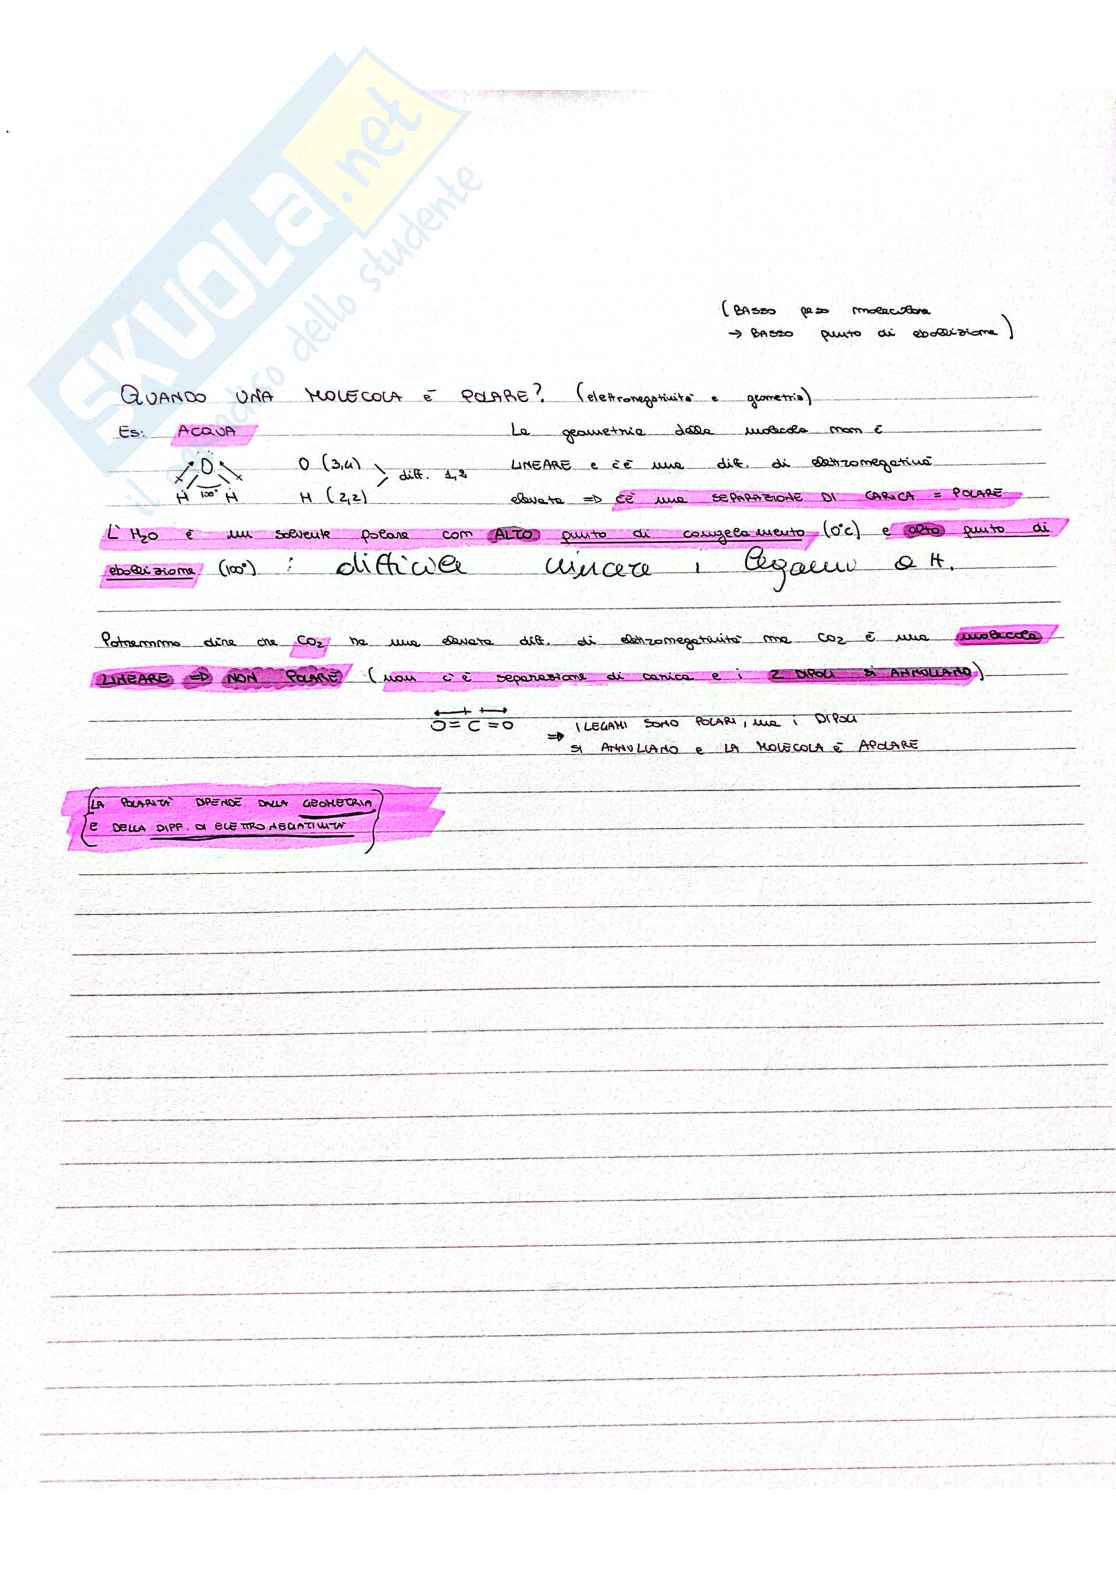 SKUOLA.net
il paradiso dello studente
(BASSO peso molecolare
→ BASSO punto di ebollizione)
QUANDO UNA MOLECOLA È POLARE? (elettronegatività e geometria)
Es: ACQUA
La geometria della molecola non è
O
O (3,4)
diff. 1,2
LINEARE e c'è una diff. di elettronegatività
H 100° H
H (2,2)
elevata => C'È una SEPARAZIONE DI CARICA = POLARE
L'H2O è un solvente polare con ALTO punto di congelamento (0°C) e alto punto di
ebollizione (100°) : difficile vincere i legami a H.
Potremmo dire che CO2 ha una elevata diff. di elettronegatività ma CO2 è una molecola
LINEARE => NON POLARE (non c'è separazione di carica e i 2 DIPOLI SI ANNULLANO)
O = C = O
=> I LEGAMI SONO POLARI, ma i DIPOLI
SI ANNULLANO e LA MOLECOLA È APOLARE
(LA POLARITÀ DIPENDE DALLA GEOMETRIA
E DELLA DIFF. DI ELETTRONEGATIVITÀ)